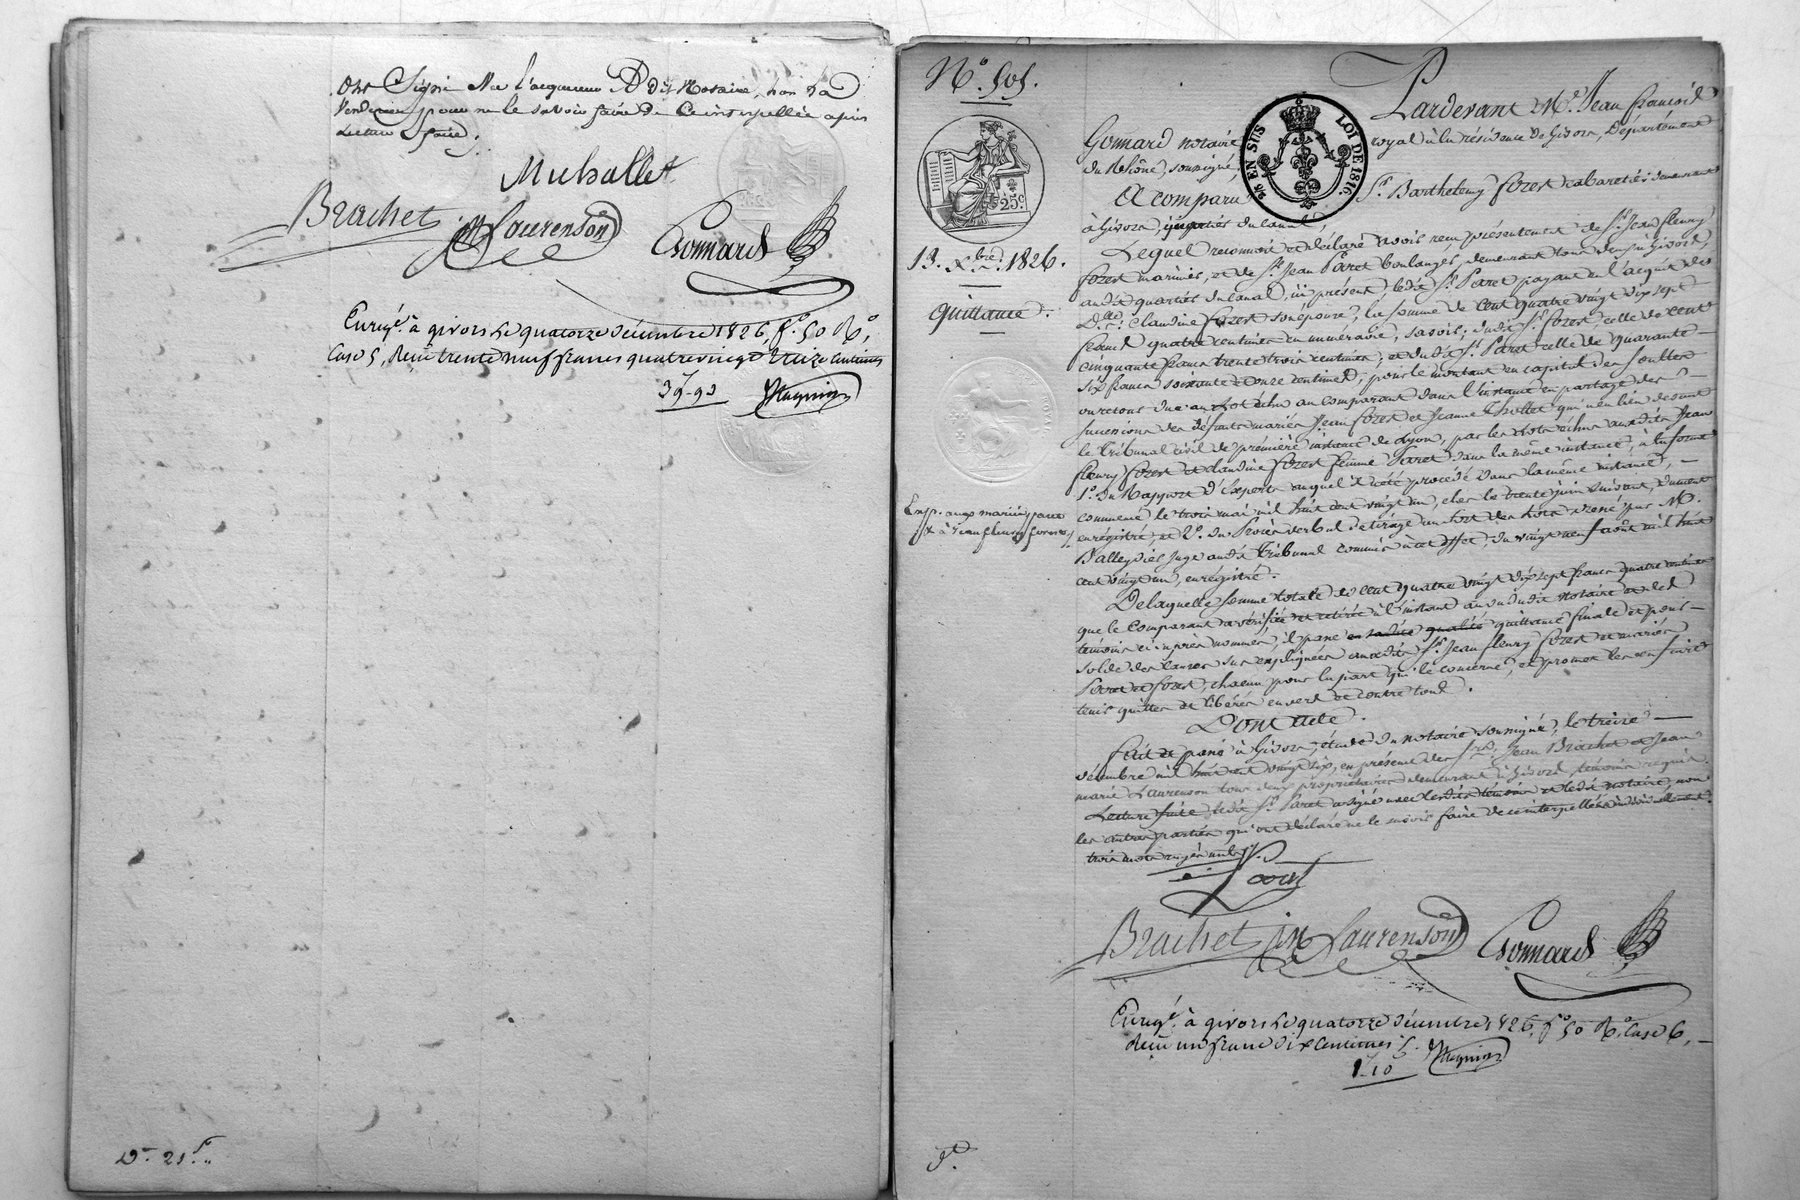 ont Signé avec l'acquereur et dit Notaire, non la
Venderesse pour ne le savoir faire de ce interpellée après
Lecture faite.
Muhallet
Brachet jm Laurenson Gonnard
Enregé. à givors le quatorze décembre 1826, fo. 50 Ro.
Case 5, Reçu trente neuf francs quatrevingt treize centimes
39-93
Dr. 25f.
No. 505.
25c
13. Xbre. 1826.
quittance.
Exp. aux mariés paret
& à Jean fleury forest
Pardevant Me. Jean françois
Gonnard notaire royal à la résidence de Givors, Département
EN SUS LOI DE 1816.
du Rhône, soussigné,
A comparu Sr. Barthelemy forest cabaretier demeurant
à Givors, quartier du canal,
Lequel reconnoit et déclare avoir reçu présentement de Sr. Jean fleury
forest marinier, et de Sr. Jean Paret boulanger, demeurant tous deux à Givors,
audit quartier du canal, ici présent, ledit Sr. Paret payant en l'acquit de
De. Claudine forest son épouse, la somme de cent quatre vingt dix sept
francs quatre centimes en numéraire, savoir; dudit Sr. forest celle de cent
cinquante francs trente trois centimes, et dudit Sr. Paret celle de quarante
six francs soixante et onze centimes, pour le montant en capital des soultes
ou retours dues au lot échu au comparant dans l'instance en partage des
successions des défunts mariés Jean forest et Jeanne Chollet qui a eu lieu devant
le tribunal civil de première instance de Lyon, par les lots échus auxdits Jean
fleury forest et claudine forest femme Paret dans la même instance, à la forme
1o. du Rapport d'Experts auquel il a été procédé dans la même instance,
commencé le trois mai mil huit cent vingt un, clos le trente juin suivant, dument
enregistré, et 2o. du Procès verbal de tirage au sort des lots dressé par M.
Balleydier Juge audit Tribunal commis à cet effet, du vingt neuf août mil huit
cent vingt un, enrégistré.
De laquelle somme totale de cent quatre vingt dix sept francs quatre centimes
que le comparant a vérifiée et retirée à l'instant au vu dudit notaire et des
témoins ci après nommés, il passe en ladite qualité quittance finale et pour
solde des causes sus expliquées auxdits Sr. Jean fleury forest et mariés
Paret et forest, chacun pour la part qui le concerne, et promet les en faire
tenir quittes et libérés envers et contre tous.
Dont acte.
fait et passé à Givors, étude du notaire soussigné, le treize
décembre mil huit cent vingt six, en présence des Srs. Jean Brachet et Jean
marie Laurenson tous deux propriétaires demeurant à Givors, témoins requis
Lecture faite, ledit Sr. Paret a signé avec lesdits témoins et ledit notaire, non
les autres parties qui ont déclaré ne le savoir faire de ce interpellées individuellement.
trois mots rayés nuls
Paret
Brachet jm Laurenson Gonnard
Enregé. à givors le quatorze décembre 1826, fo. 50 Ro. Case 6,
Reçu un franc dix centimes
1-10